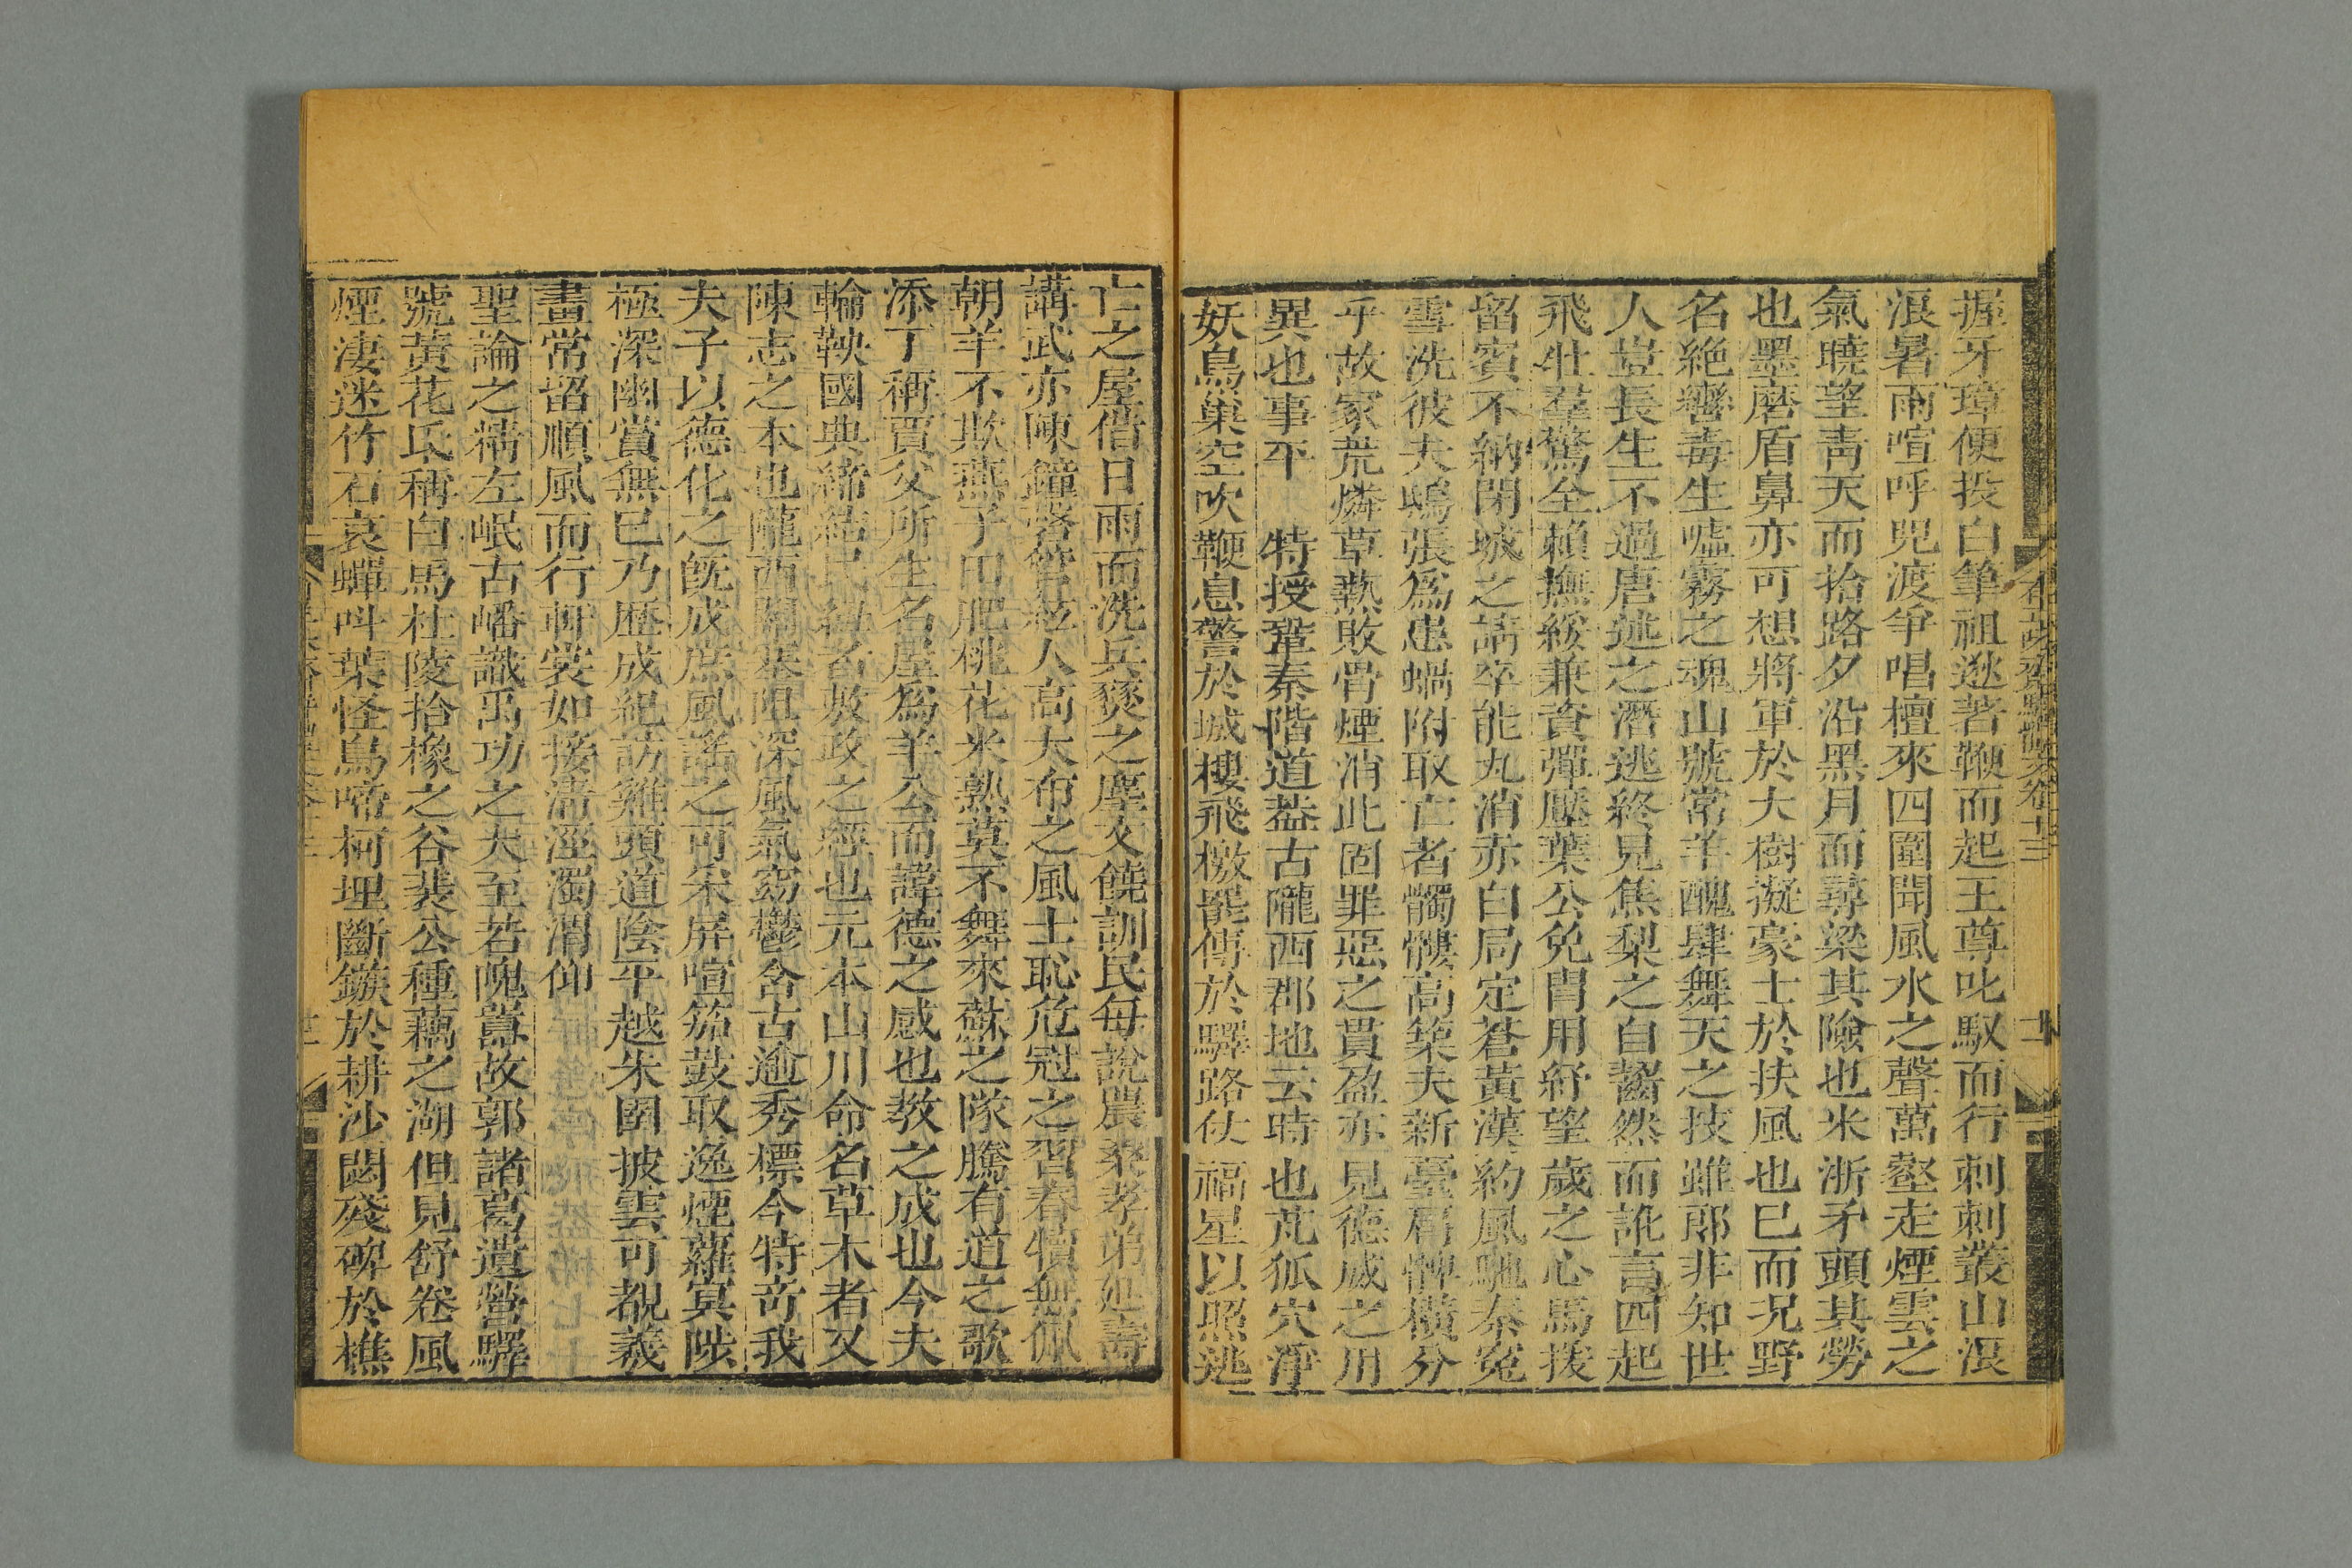 握牙璋便投白筆祖逖著鞭而起王尊叱馭而行刺刺叢山浪
浪暑雨喧呼兕渡爭唱檀來四圍聞風水之聲萬壑走煙雲之
氣曉望靑天而拾路夕沿黑月而尋梁其險也米淅矛頭其勞
也墨磨盾鼻亦可想將軍於大樹擬豪士於扶風也已而况野
名絶轡毒生噓霧之魂山號常羊醜肆舞天之技雖郎非知世
人豈長生不過唐述之潛逃終見焦梨之自齧然而訛言四起
飛牡羣驚全賴撫綏兼資彈壓葉公免胄用紓望歲之心馬援
留賓不納閉城之請卒能丸消赤白局定蒼黃漢約風馳秦冤
雪洗彼夫鴟張爲患蝸附取亡者髑髏高築夫新臺脣髀橫分
乎故家荒燐草爇敗骨煙消此固罪惡之貫盈亦見德威之用
異也事平 特授鞏秦階道葢古隴西郡地云時也荒狐穴淨
妖鳥巢空吹鞭息警於城樓飛檄罷傳於驛路仗福星以照逃
亡之屋借日雨而洗兵燹之塵文饒訓民每說農桑孝弟延壽
講武亦陳鐘 管絃人高大布之風士恥危冠之習春犢無佩
朝羊不欺燕子 肥桃花米熟莫不舞來蘇之隊騰有道之歌
添丁稱賈父所生名屋爲羊公而諱德之感也教之成也今夫
輪鞅國典締結民 者敷政之經也元本山川命名草木者又
陳志之本也隴西關塞阻深風氣窈鬱含古逾秀標今特竒我
夫子以德化之旣成庶風謠之可采屏喧笳鼓取逸煙蘿冥陟
極深幽賞無已乃歴成紀訪雞頭道陰平越朱圉披雲可覩羲
畫常留順風而行軒裳如接淸涇濁渭仰
聖論之精左岷古嶓識禹功之大至若隗囂故郭諸葛遺營驛
號黃花氐稱白馬杜陵拾橡之谷裴公種藕之湖但見舒卷風
煙淒迷竹石哀蟬呌葉怪鳥啼柯埋斷鏃於耕沙閟殘碑於樵